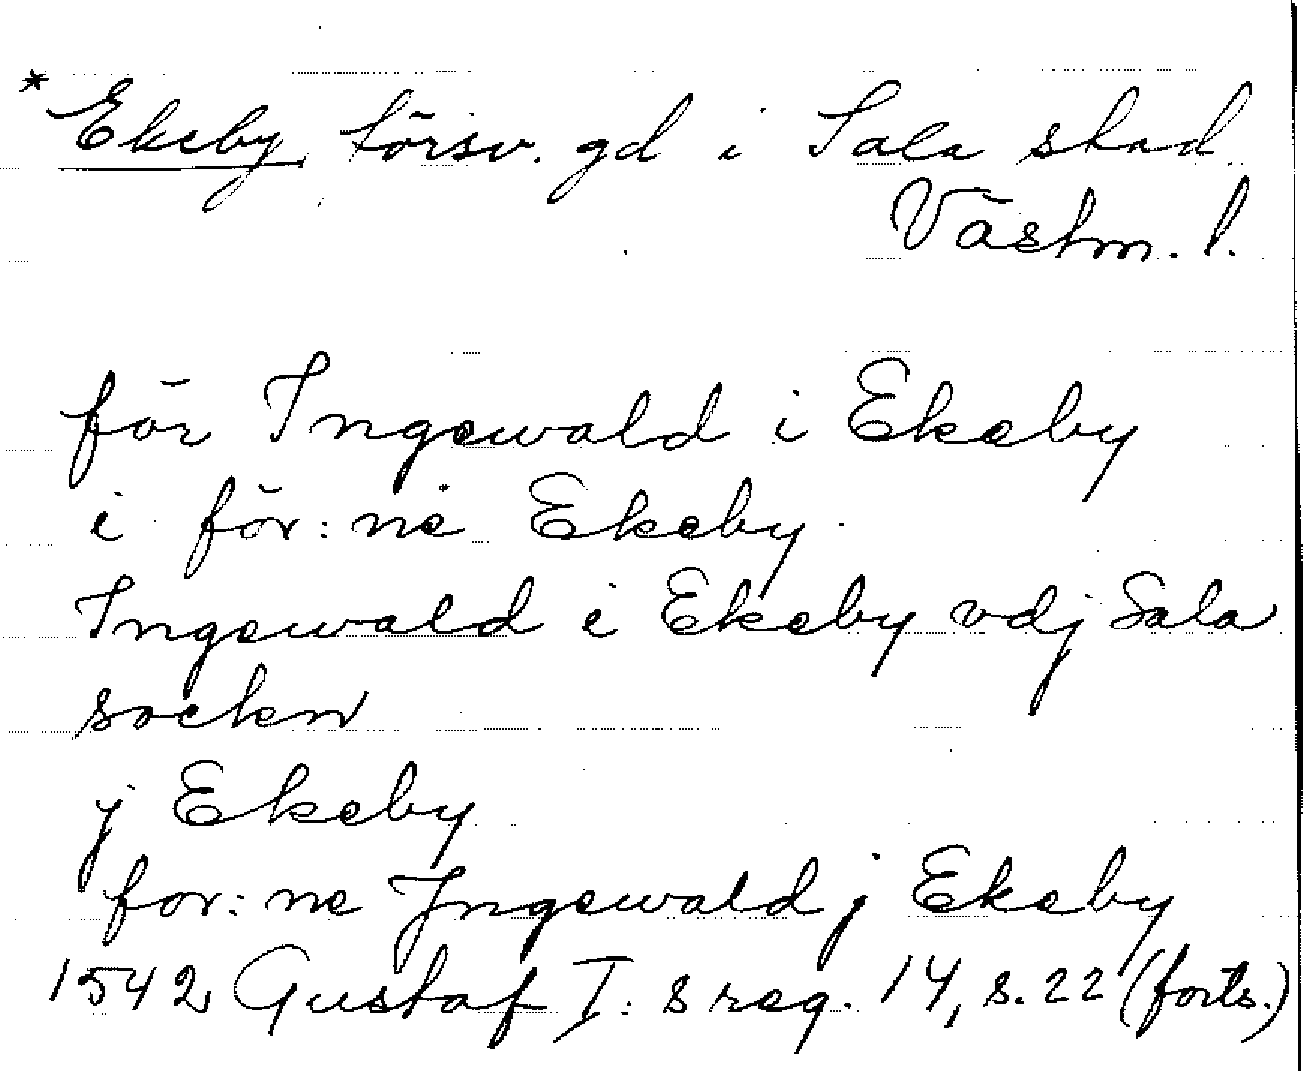 * Ekeby, försv. gd i Sala stad
Västm. l.
för Ingewald i Ekeby
i för: nė Ekeby
Ingewald i Ekeby vdj Sala
sockn
j Ekeby
for: ne Jngewald j Ekeby
1542 Gustaf I: s reg. 14, s. 22 (forts.)